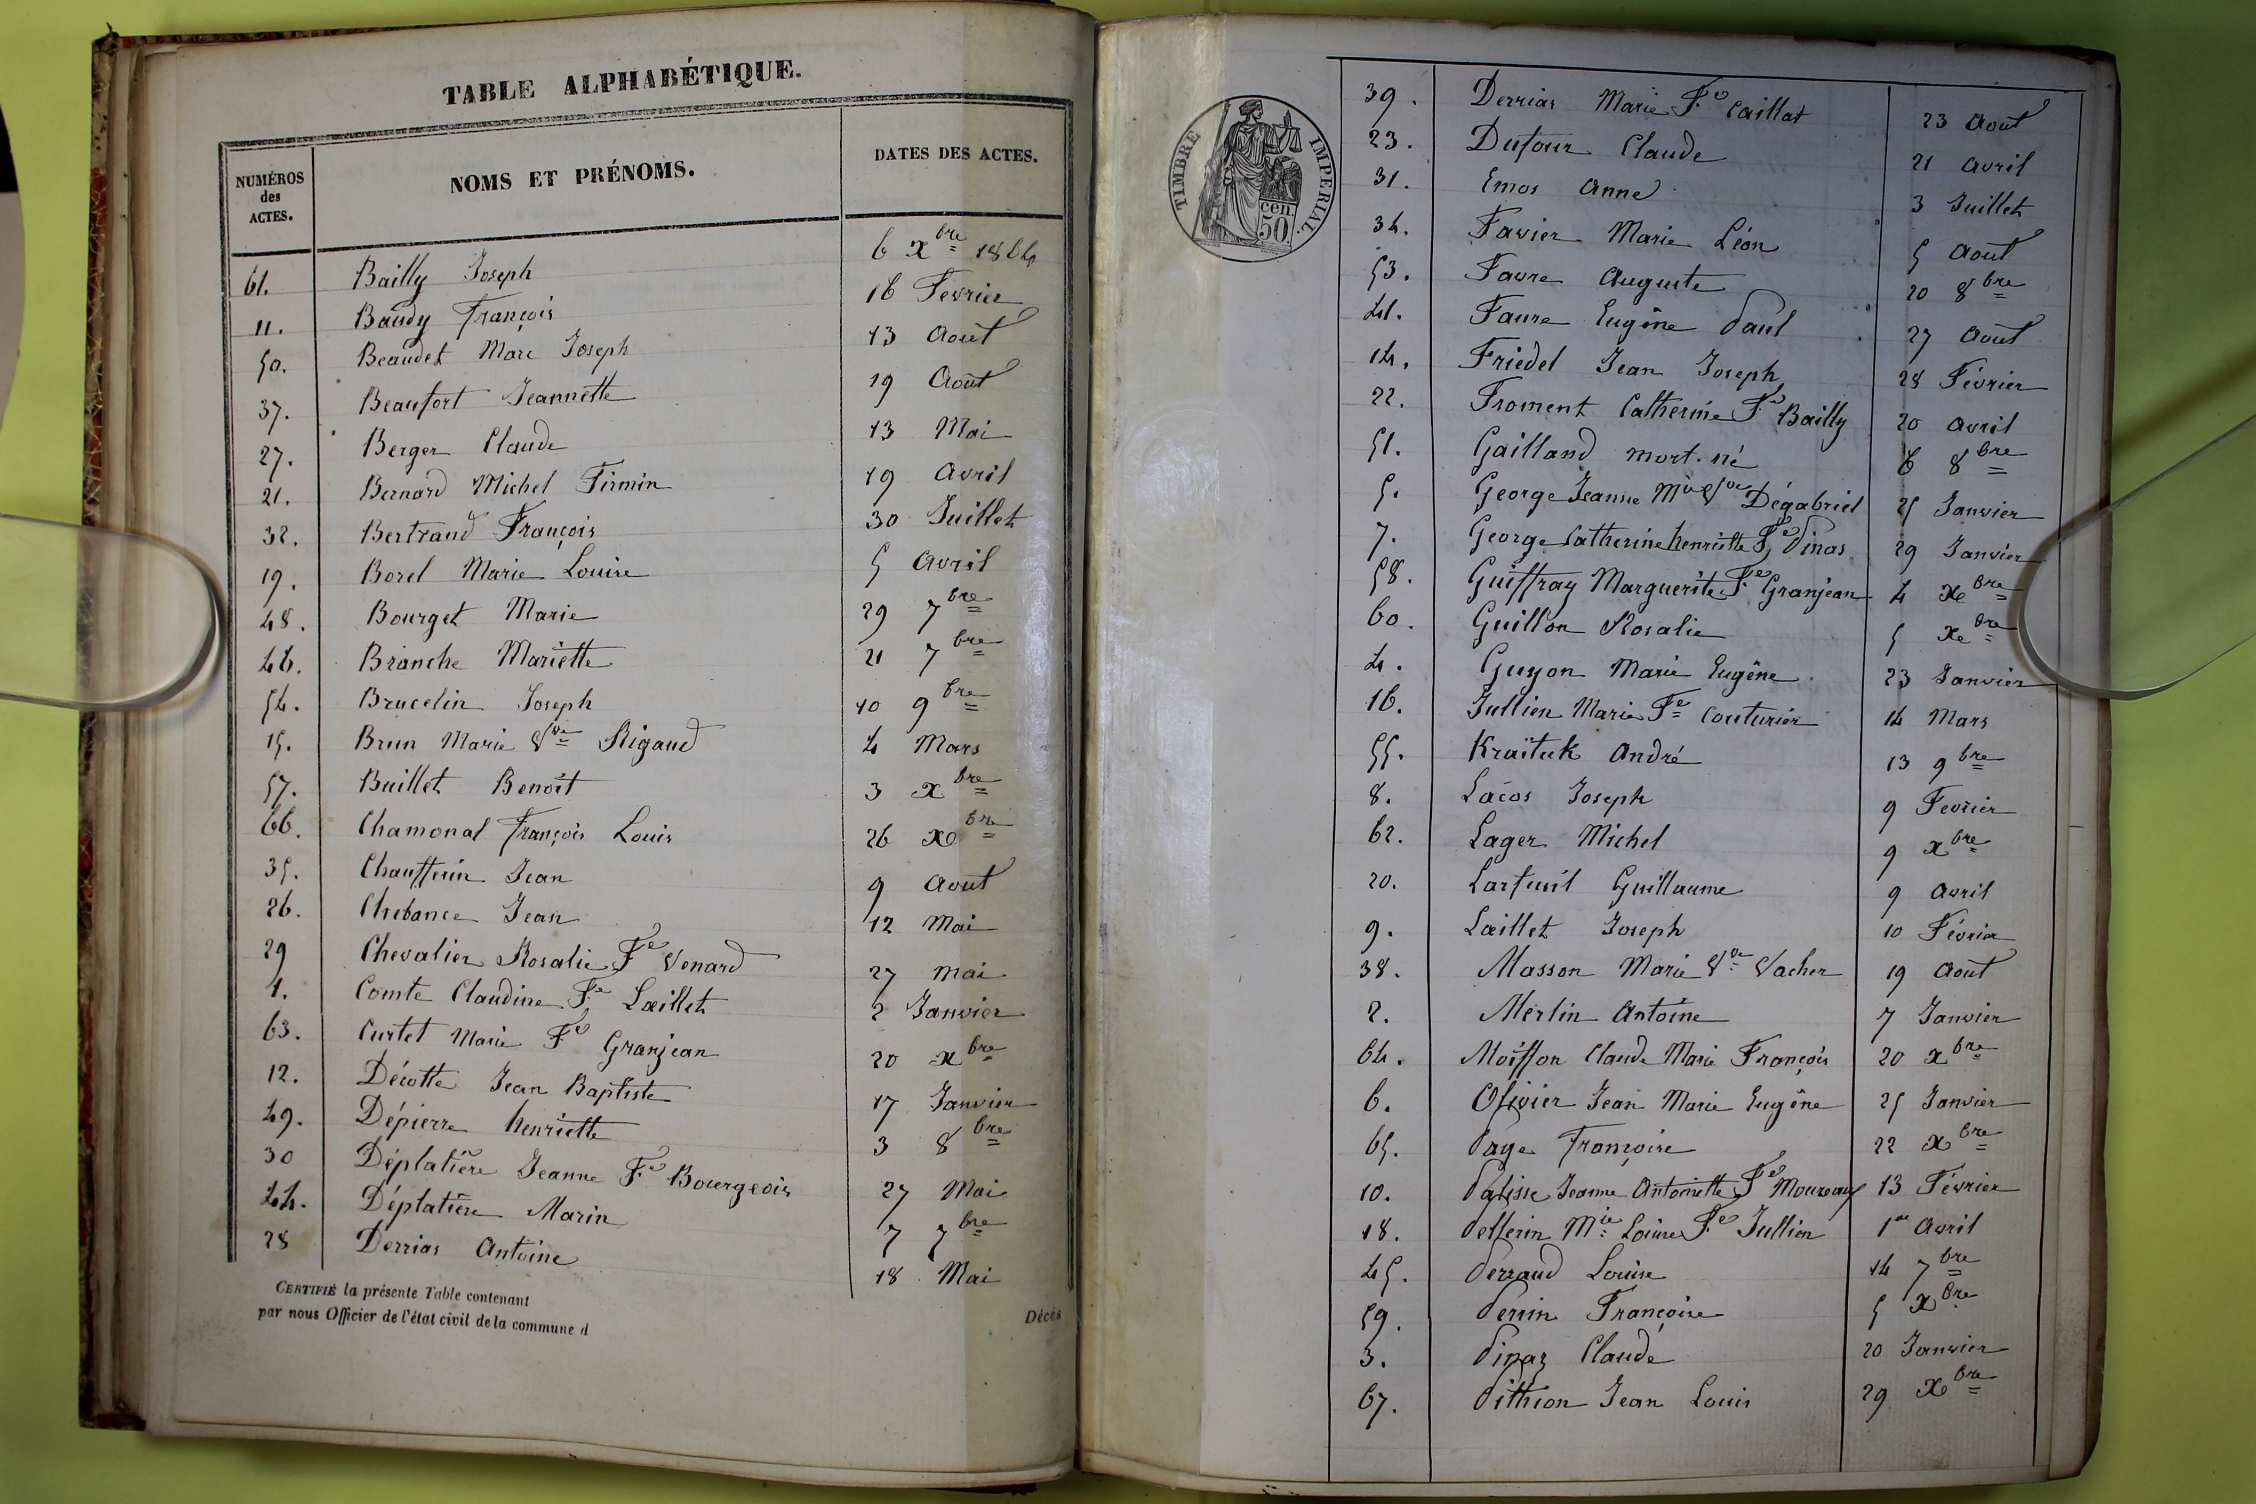 TABLE ALPHABÉTIQUE.
NUMÉROS des ACTES. NOMS ET PRÉNOMS. DATES DES ACTES.
61. Bailly Joseph 6 xbre 1864
11. Baudy François 16 Fevrier
50. Beaudet Marc Joseph 13 Août
37. Beaufort Jeannette 19 Août
27. Berger Claude 13 Mai
21. Bernard Michel Firmin 19 Avril
32. Bertrand François 30 Juillet
19. Borel Marie Louise 5 Avril
48. Bourget Marie 29 7bre
46. Branche Mariette 21 7bre
54. Brucelin Joseph 10 9bre
15. Brun Marie Vve Rigaud 4 Mars
57. Buillet Benoît 3 xbre
66. Chamonal François Louis 26 xbre
35. Jean 9 Aout
26. Chebance Jean 12 Mai
29 Chevalier Rosalie Fe Venard 27 mai
1. Comte Claudine Fe Lœillet 2 Janvier
63. Curtet Marie Fe Granjean 20 xbre
12. Décotte Jean Baptiste 17 Janvier
49. Dépierre henriette 3 8bre
30 Déplatière Jeanne Fe Bourgeois 27 Mai
44. Déplatière Marin 7 7bre
28 Derrias Antoine 18 Mai
CERTIFIÉ la présente Table contenant
par nous Officier de l'état civil de la commune d
Décès
TIMBRE IMPERIAL.
50 cen.
39. Derrias Marie Fe Caillat 23 Août
23. Dufour Claude 21 Avril
31. Emos Anne 3 Juillet
34. Favier Marie Léon 5 Août
53. Favre Auguste 20 8bre
41. Faure Eugêne Paul 27 Août
14. Friedel Jean Joseph 28 Février
22. Froment Catherine Fe Bailly 20 Avril
51. Gailland mort-né 6 8bre
5. George Jeanne Mie Vve Dégabriel 25 Janvier
7. George Catherine henriette Fe Pinas 29 Janvier
58. Guiffray Marguerite Fe Granjean 4 xbre
60. Guillon Rosalie 5 xbre
4. Guyon Marie Eugêne 23 Janvier
16. Jullien Marie Fe Couturier 14 Mars
55. André 13 9bre
8. Lacos Joseph 9 Fevrier
62. Lager Michel 9 xbre
20. Guillaume 9 Avril
9. Lœillet Joseph 10 Février
38. Masson Marie Vve Vacher 19 Août
2. Merlin Antoine 7 Janvier
64. Moiffon Claude Marie François 20 xbre
6. Olivier Jean Marie Eugêne 25 Janvier
65. Page Françoise 22 xbre
10. Palisse Jeanne Antoinette Fe 13 Février
18. Pellerin Mie Louise Fe Jullien 1er Avril
45. Perraud Louise 14 7bre
59. Perrin Françoise 5 xbre
3. Pinaz Claude 20 Janvier
67. Pithion Jean Louis 29 xbre